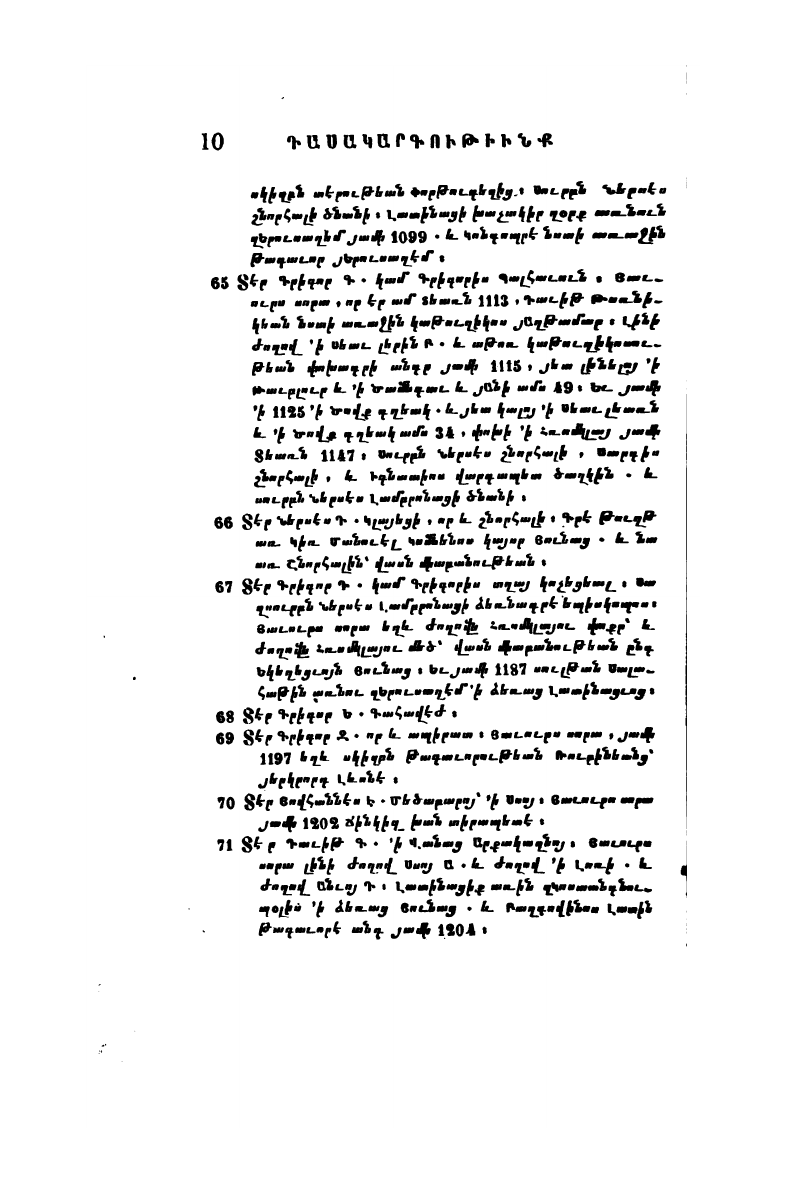 10 ԴԱՍԱԿԱՐԳՈՒԹԻՒՆՔ
սկիզբն տէրութեան Փորթուգեզից. Սուրբն Ներսէս
շնորհալի ծնանի։ Լատինացի խաչակիր զօրք առնուն
զերուսաղէմ յամի 1099 · և Կոնդոպրէ նստի առաջին
Թագաւոր յերուսաղէմ ։
65 Տէր Գրիգոր Գ · կամ Գրիգորիս Պալհաւունի ։ Յաւ֊
ուրս սորա , որ էր ամ Տեառն 1113 , Դաւիթ Թոռնի֊
կեան նստի առաջին կաթուղիկոս յԱղթամար ։ Լինի
Ժողով ՚ի Սեաւ լերին Բ · և աթոռ կաթուղիկոսու֊
թեան փոխադրի անդր յամի 1115 , յետ լինելոյ ՚ի
Թաւբլուր և ՚ի Ծամնդաւ և յԱնի ամս 49։ Եւ յամի
՚ի 1125 ՚ի Ծովք դղեակ · և յետ կալոյ ՚ի Սեաւ լեառն
և ՚ի Ծովք դղեակ ամս 34 , փոխի ՚ի Հռոմկլայ յամի
Տեառն 1147 ։ Սուրբն Ներսէս շնորհալի , Սարգիս
շնորհալի , և Իգնատիոս վարդապետ ծաղկին · և
սուրբն Ներսէս Լամբրոնացի ծնանի ։
66 Տէր Ներսէս Դ · Կլայեցի , որ և շնորհալի ։ Գրէ Թուղթ
առ Կիռ Մանուէլ Կոմնենոս կայսր Յունաց · և նա
առ Շնորհալին՝ վասն միաբանութեան ։
67 Տէր Գրիգոր Դ · կամ Գրիգորիս տղայ կոչեցեալ ։ Սա
զսուրբն Ներսէս Լամբրոնացի ձեռնադրէ եպիսկոպոս։
Յաւուրս սորա եղև Ժողովն Հռոմկլայու փոքր՝ և
Ժողովն Հռոմկլայու մեծ՝ վասն միաբանութեան ընդ
Եկեղեցւոյն Յունաց ։ Եւ յամի 1187 սուլթան Սալա֊
հաթին առնու զերուսաղէմ ՚ի ձեռաց Լատինացւոց ։
68 Տէր Գրիգոր Ե · Գահավէժ ։
69 Տէր Գրիգոր Զ · որ և ապիրատ ։ Յաւուրս սորա , յամի
1197 եղև սկիզբն Թագաւորութեան Ռուբինեանց՝
յերկրորդ Լևոնէ ։
70 Տէր Յովհաննէս Է · Մեծաբարոյ՝ ՚ի Սսոյ ։ Յաւուրս սորա
յամի 1202 Ճինկիզ խան տիրապետէ ։
71 Տէր Դաւիթ Գ · ՚ի Վանաց Արքակաղնոյ ։ Յաւուրս
սորա լինի Ժողով Սսոյ Ա · և Ժողով ՚ի Լոռի · և
Ժողով Անւոյ Դ ։ Լատինացիք առին զկոստանդնու֊
պօլիս ՚ի ձեռաց Յունաց · և Բաղդովինոս Լատին
Թագաւորէ անդ յամի 1204 ։